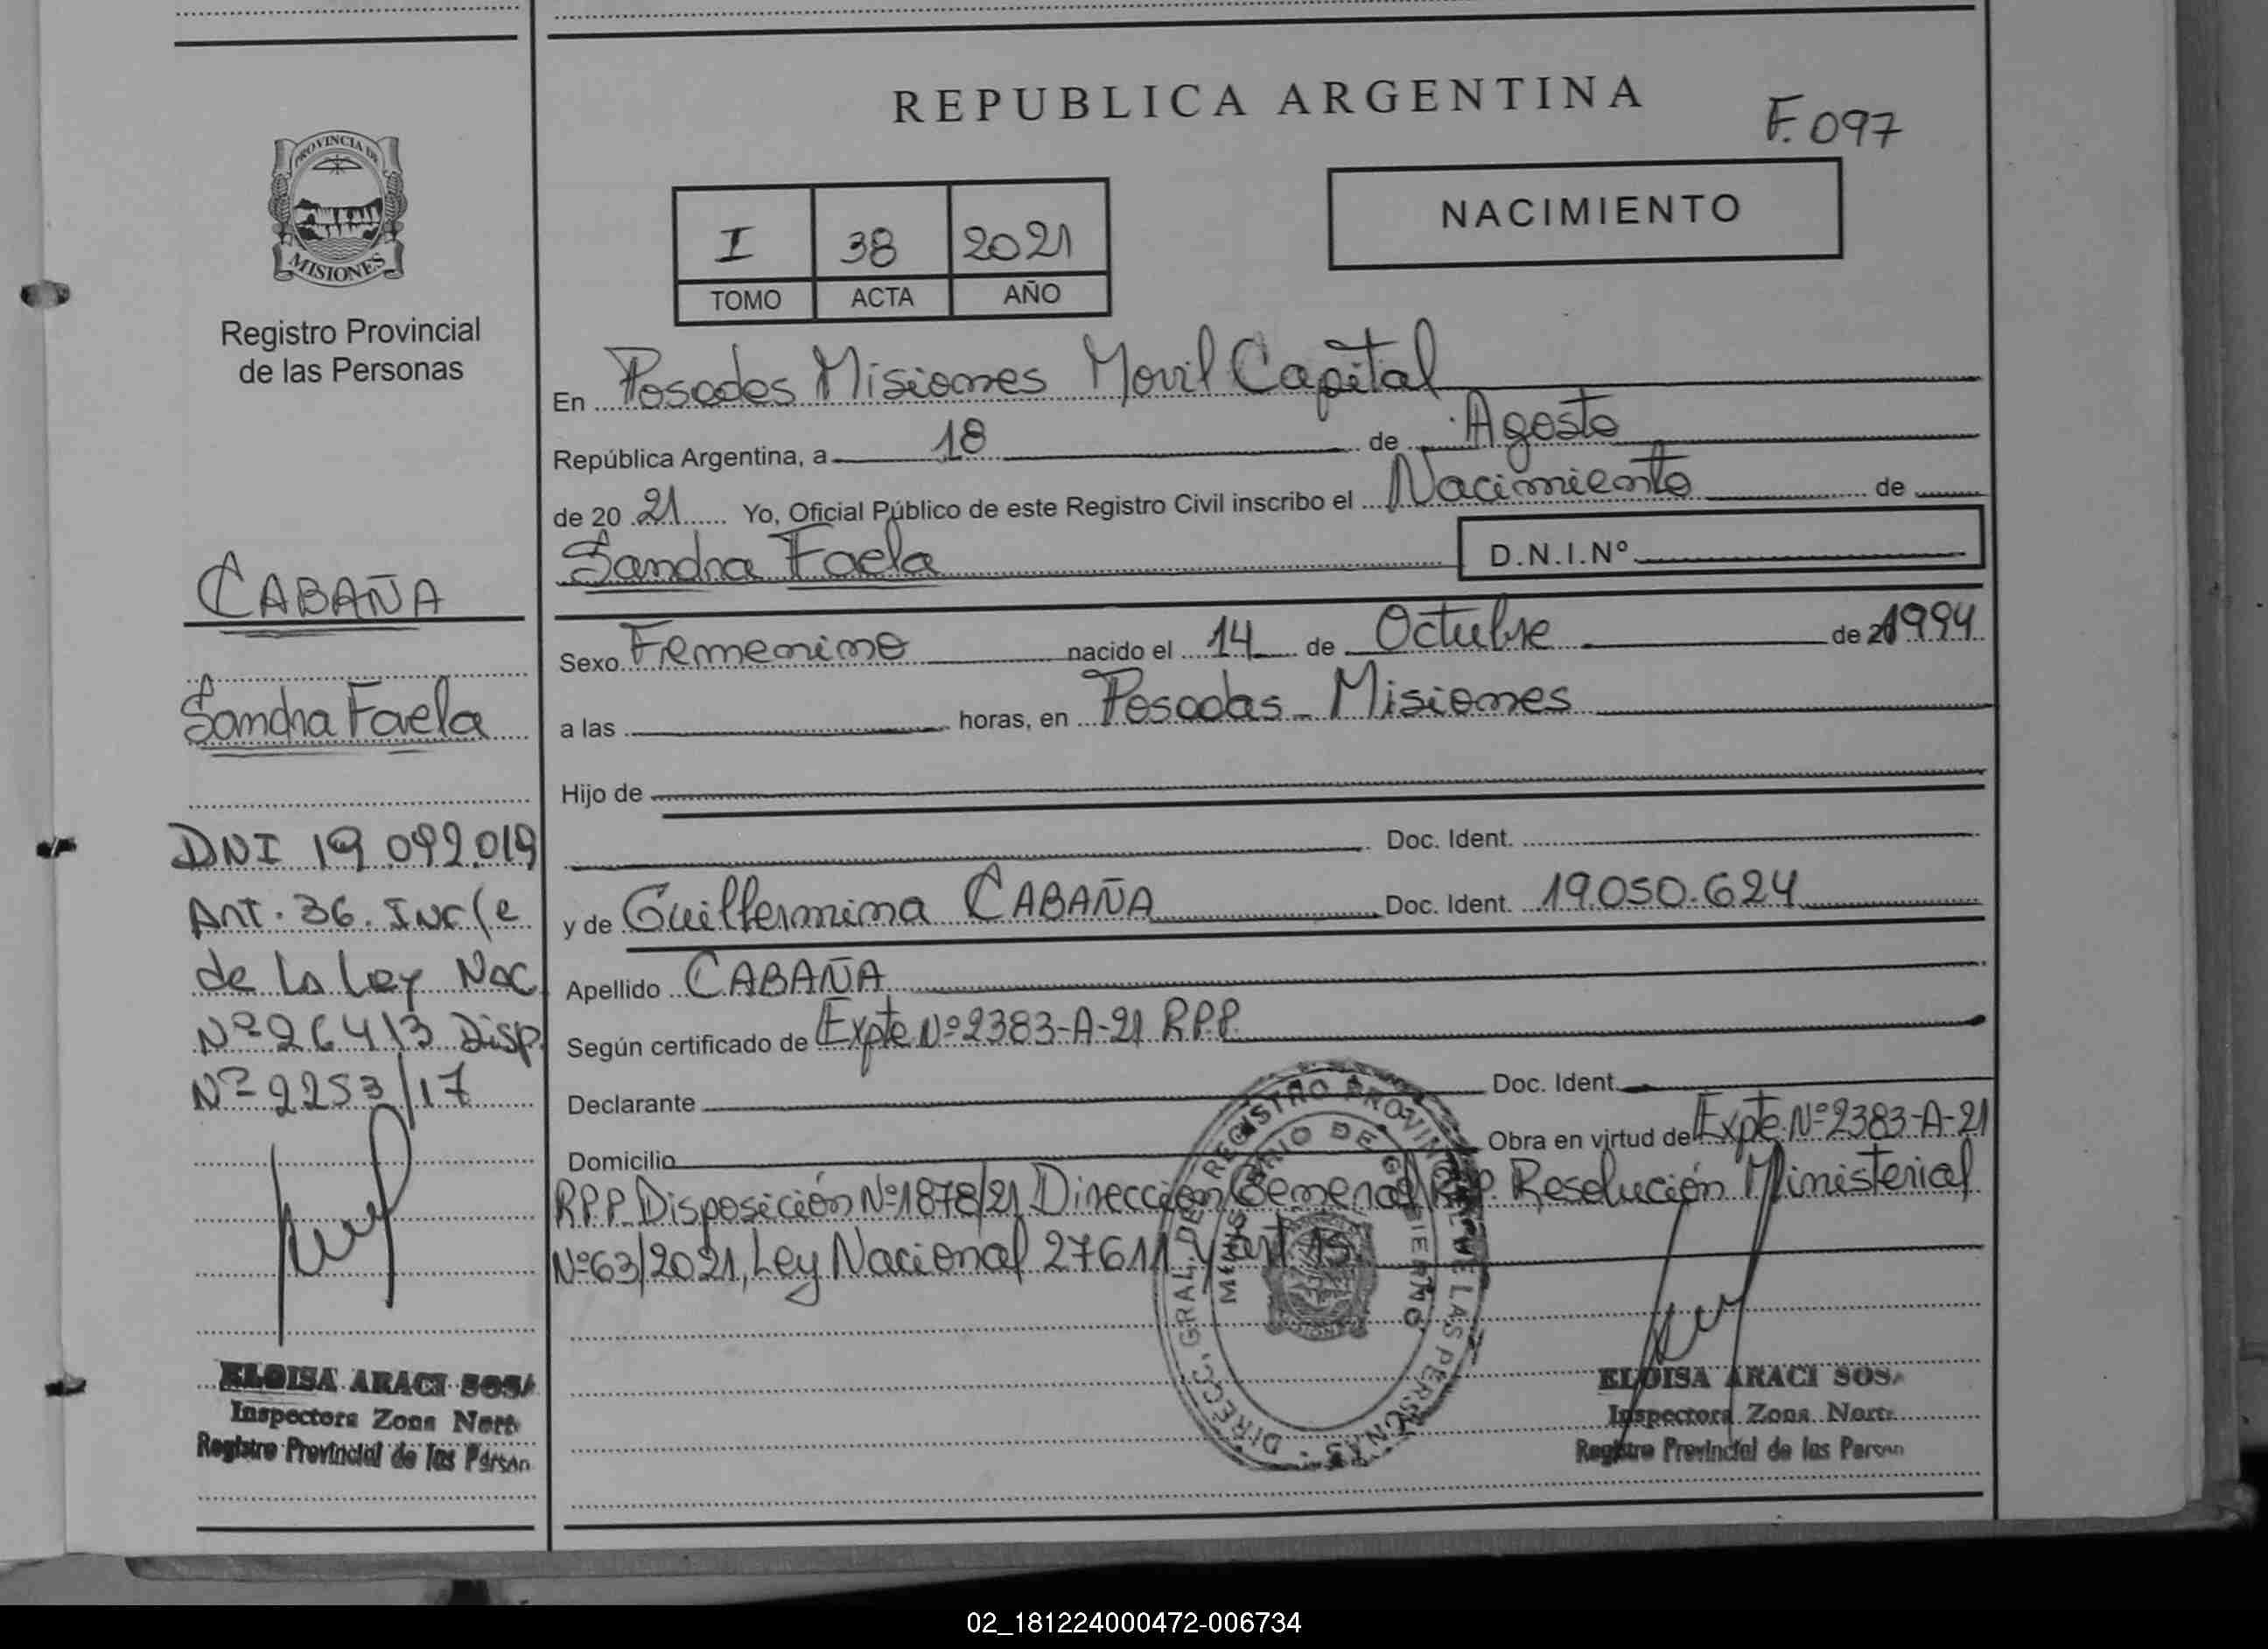 REPUBLICA ARGENTINA
F. 097
PROVINCIA DE
MISIONES
Registro Provincial
de las Personas
I 38 2021
TOMO ACTA AÑO
NACIMIENTO
En Posadas Misiones Movil Capital
República Argentina, a 18 de Agosto
de 20 21 Yo, Oficial Público de este Registro Civil inscribo el Nacimiento de
Sandra Faela D.N.I.Nº
Sexo Femenino nacido el 14 de Octubre de 1994
a las horas, en Posadas - Misiones
Hijo de
Doc. Ident.
y de Guillermina CABAÑA Doc. Ident. 19.050.624
Apellido CABAÑA
Según certificado de Expte Nº 2383-A-21 R.P.P.
Declarante Doc. Ident.
Domicilio Obra en virtud de Expte. Nº 2383-A-21
R.P.P. Disposición Nº 1878/21 Direccion General R.P.P. Resolución Ministerial
Nº 63/2021, Ley Nacional 27611 y art 15.
CABAÑA
Sandra Faela
DNI 19.092.019
Art. 36. Inc/e
de la Ley Nac
Nº 26413 Disp.
Nº 2253/17
ELOISA ARACI SOSA
Inspectora Zona Nort
Registro Provincial de las Person
DIRECC. GRAL. DEL REGISTRO PROVINCIAL DE LAS PERSONAS
MINISTERIO DE GOBIERNO
ELOISA ARACI SOSA
Inspectora Zona Norte
Registro Provincial de las Person
02_181224000472-006734